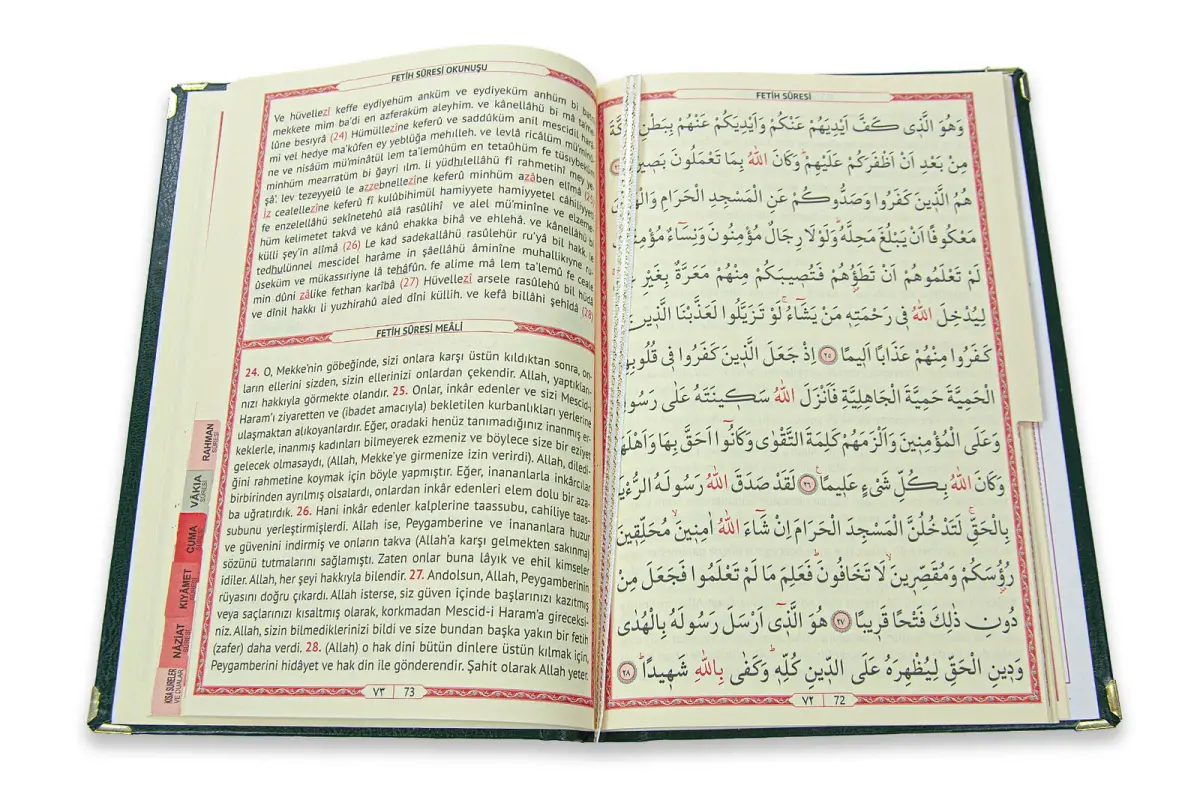 FETİH SÛRESİ
وَهُوَ الَّذ۪ي كَفَّ اَيْدِيَهُمْ عَنْكُمْ وَاَيْدِيَكُمْ عَنْهُمْ بِبَطْنِ
مِنْ بَعْدِ اَنْ اَظْفَرَكُمْ عَلَيْهِمْۜ وَكَانَ اللّٰهُ بِمَا تَعْمَلُونَ بَص۪يرًا
هُمُ الَّذ۪ينَ كَفَرُوا وَصَدُّوكُمْ عَنِ الْمَسْجِدِ الْحَرَامِ
مَعْكُوفًا اَنْ يَبْلُغَ مَحِلَّهُۜ وَلَوْلَا رِجَالٌ مُؤْمِنُونَ وَنِسَٓاءٌ
لَمْ تَعْلَمُوهُمْ اَنْ تَطَؤُ۫هُمْ فَتُص۪يبَكُمْ مِنْهُمْ مَعَرَّةٌ بِغَيْرِ
لِيُدْخِلَ اللّٰهُ ف۪ي رَحْمَتِه۪ مَنْ يَشَٓاءُۚ لَوْ تَزَيَّلُوا لَعَذَّبْنَا الَّذ۪ينَ
كَفَرُوا مِنْهُمْ عَذَابًا اَل۪يمًا ﴿٢٥﴾ اِذْ جَعَلَ الَّذ۪ينَ كَفَرُوا ف۪ي قُلُوبِهِمُ
الْحَمِيَّةَ حَمِيَّةَ الْجَاهِلِيَّةِ فَاَنْزَلَ اللّٰهُ سَك۪ينَتَهُ عَلٰى رَسُولِه۪
وَعَلَى الْمُؤْمِن۪ينَ وَاَلْزَمَهُمْ كَلِمَةَ التَّقْوٰى وَكَانُٓوا اَحَقَّ بِهَا وَاَهْلَهَا
وَكَانَ اللّٰهُ بِكُلِّ شَيْءٍ عَل۪يمًا۟ ﴿٢٦﴾ لَقَدْ صَدَقَ اللّٰهُ رَسُولَهُ الرُّءْيَا
بِالْحَقِّۚ لَتَدْخُلُنَّ الْمَسْجِدَ الْحَرَامَ اِنْ شَٓاءَ اللّٰهُ اٰمِن۪ينَۙ مُحَلِّق۪ينَ
رُؤُ۫سَكُمْ وَمُقَصِّر۪ينَۙ لَا تَخَافُونَۜ فَعَلِمَ مَا لَمْ تَعْلَمُوا فَجَعَلَ مِنْ
دُونِ ذٰلِكَ فَتْحًا قَر۪يبًا ﴿٢٧﴾ هُوَ الَّذ۪ٓي اَرْسَلَ رَسُولَهُ بِالْهُدٰى
وَد۪ينِ الْحَقِّ لِيُظْهِرَهُ عَلَى الدّ۪ينِ كُلِّه۪ۜ وَكَفٰى بِاللّٰهِ شَه۪يدًاۜ ﴿٢٨﴾
٧٢ | 72
FETİH SÛRESİ OKUNUŞU
Ve hüvellezî keffe eydiyehüm anküm ve eydiyeküm anhüm bi
mekkete mim ba'di en azferaküm aleyhim. ve kânellâhü bi mâ ta'me-
lûne besıyrâ (24) Hümüllezîne keferû ve saddûküm anil mescidil
mi vel hedye ma'kûfen ey yeblüğa mehılleh. ve levlâ ricâlüm
ne ve nisâüm mü'minâtül lem ta'lemûhüm en tetaûhüm fe tüsıybeküm
minhüm mearratüm bi ğayri ılm. li yüdhılellâhü fî rahmetihî mey ye-
şâ'. lev tezeyyelû le azzebnellezîne keferû minhüm azâben elîmâ (25)
İz cealellezîne keferû fî kulûbihimül hamiyyete hamiyyetel câhiliyyeti
fe enzelellâhü sekînetehû alâ rasûlihî ve alel mü'minîne ve elzeme-
hüm kelimetet takvâ ve kânû ehakka bihâ ve ehlehâ. ve kânellâhü bi
külli şey'in alîmâ (26) Le kad sadekallâhü rasûlehür ru'yâ bil hakk. le
tedhulünnel mescidel harâme in şâellâhü âminîne muhallikıyne ru-
ûseküm ve mükassıriyne lâ tehâfûn. fe alime mâ lem ta'lemû fe ceale
min dûni zâlike fethan karîbâ (27) Hüvellezî arsele rasûlehû bil hüdâ
ve dînil hakkı li yuzhirahû aled dîni küllih. ve kefâ billâhi şehîdâ (28)
FETİH SÛRESİ MEÂLİ
24. O, Mekke'nin göbeğinde, sizi onlara karşı üstün kıldıktan sonra, on-
ların ellerini sizden, sizin ellerinizi onlardan çekendir. Allah, yaptıkları-
nızı hakkıyla görmekte olandır. 25. Onlar, inkâr edenler ve sizi Mescid-i
Haram'ı ziyaretten ve (ibadet amacıyla) bekletilen kurbanlıkları yerlerine
ulaşmaktan alıkoyanlardır. Eğer, oradaki henüz tanımadığınız inanmış er-
keklerle, inanmış kadınları bilmeyerek ezmeniz ve böylece size bir eziyet
gelecek olmasaydı, (Allah, Mekke'ye girmenize izin verirdi). Allah, diledi-
ğini rahmetine koymak için böyle yapmıştır. Eğer, inananlarla inkârcılar
birbirinden ayrılmış olsalardı, onlardan inkâr edenleri elem dolu bir aza-
ba uğratırdık. 26. Hani inkâr edenler kalplerine taassubu, cahiliye taas-
subunu yerleştirmişlerdi. Allah ise, Peygamberine ve inananlara huzur
ve güvenini indirmiş ve onların takva (Allah'a karşı gelmekten sakınma)
sözünü tutmalarını sağlamıştı. Zaten onlar buna lâyık ve ehil kimseler
idiler. Allah, her şeyi hakkıyla bilendir. 27. Andolsun, Allah, Peygamberinin
rüyasını doğru çıkardı. Allah isterse, siz güven içinde başlarınızı kazıtmış
veya saçlarınızı kısaltmış olarak, korkmadan Mescid-i Haram'a gireceksi-
niz. Allah, sizin bilmediklerinizi bildi ve size bundan başka yakın bir fetih
(zafer) daha verdi. 28. (Allah) o hak dini bütün dinlere üstün kılmak için,
Peygamberini hidâyet ve hak din ile gönderendir. Şahit olarak Allah yeter.
٧٣ | 73
RAHMAN
SÛRESİ
VÂKIA
SÛRESİ
CUMA
SÛRESİ
KIYÂMET
NÂZİAT
SÛRESİ
KISA SÛRELER
VE DUALAR